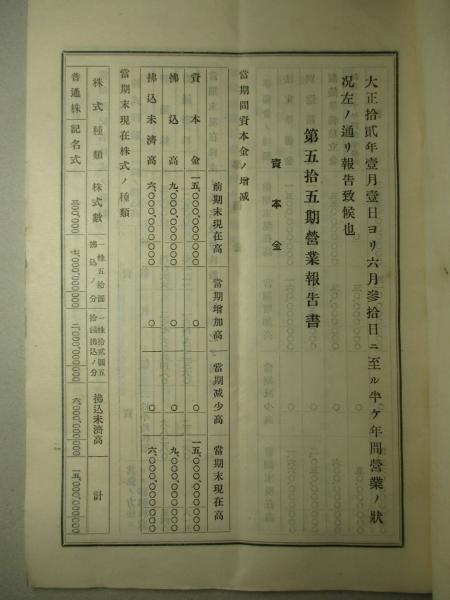 大正拾貳年壹月壹日ヨリ六月參拾日ニ至ル半ケ年間營業ノ狀
況左ノ通リ報告致候也
第五拾五期營業報告書
資本金
當期間資本金ノ增減
前期末現在高 當期增加高 當期減少高 當期末現在高
資本金 一五、〇〇〇、〇〇〇、〇〇〇 〇 〇 一五、〇〇〇、〇〇〇、〇〇〇
拂込高 九、〇〇〇、〇〇〇、〇〇〇 〇 〇 九、〇〇〇、〇〇〇、〇〇〇
拂込未濟高 六、〇〇〇、〇〇〇、〇〇〇 〇 〇 六、〇〇〇、〇〇〇、〇〇〇
當期末現在株式ノ種類
株式種類 株式數 一株五拾圓拂込ノ分 一株拾貳圓五拾錢拂込ノ分 拂込未濟高 計
普通株 記名式 六、〇〇〇、〇〇〇、〇〇〇 一五、〇〇〇、〇〇〇、〇〇〇